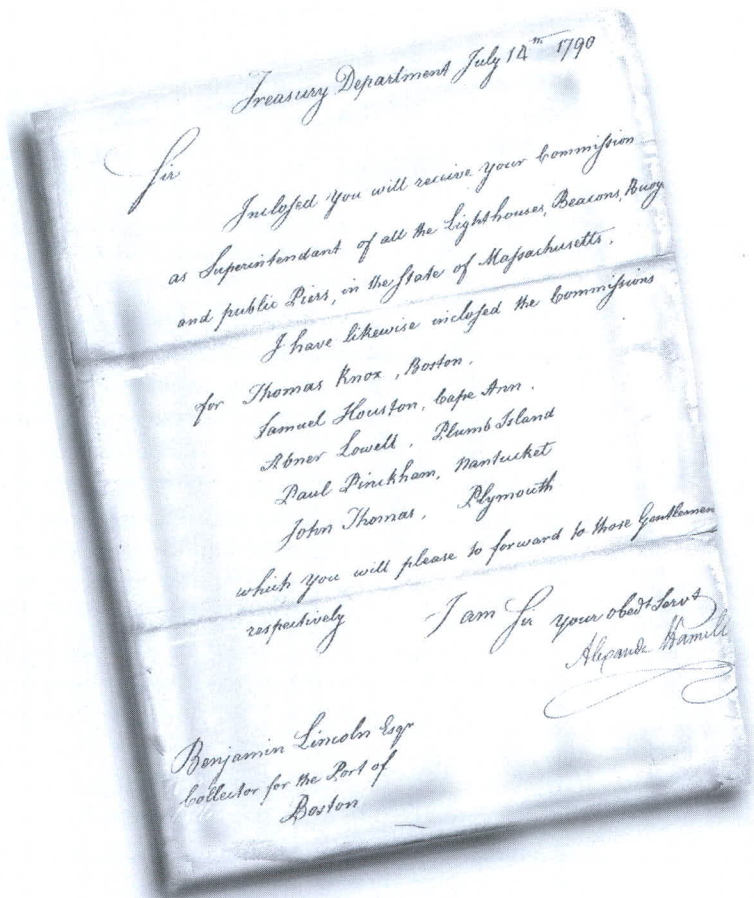 Treasury Department July 14th 1790
Sir
Inclosed you will receive your Commission
as Superintendant of all the Lighthouses, Beacons, Buoy
and public Piers, in the State of Massachusetts.
I have likewise inclosed the Commissions
for Thomas Knox, Boston.
Samuel Houston, Cape Ann.
Abner Lowell, Plumb Island
Paul Pinckham, Nantucket
John Thomas, Plymouth
which you will please to forward to those Gentlemen
respectively I am Sir your obedt Servt
Alexande Hamilt
Benjamin Lincoln Esqr
Collector for the Port of
Boston